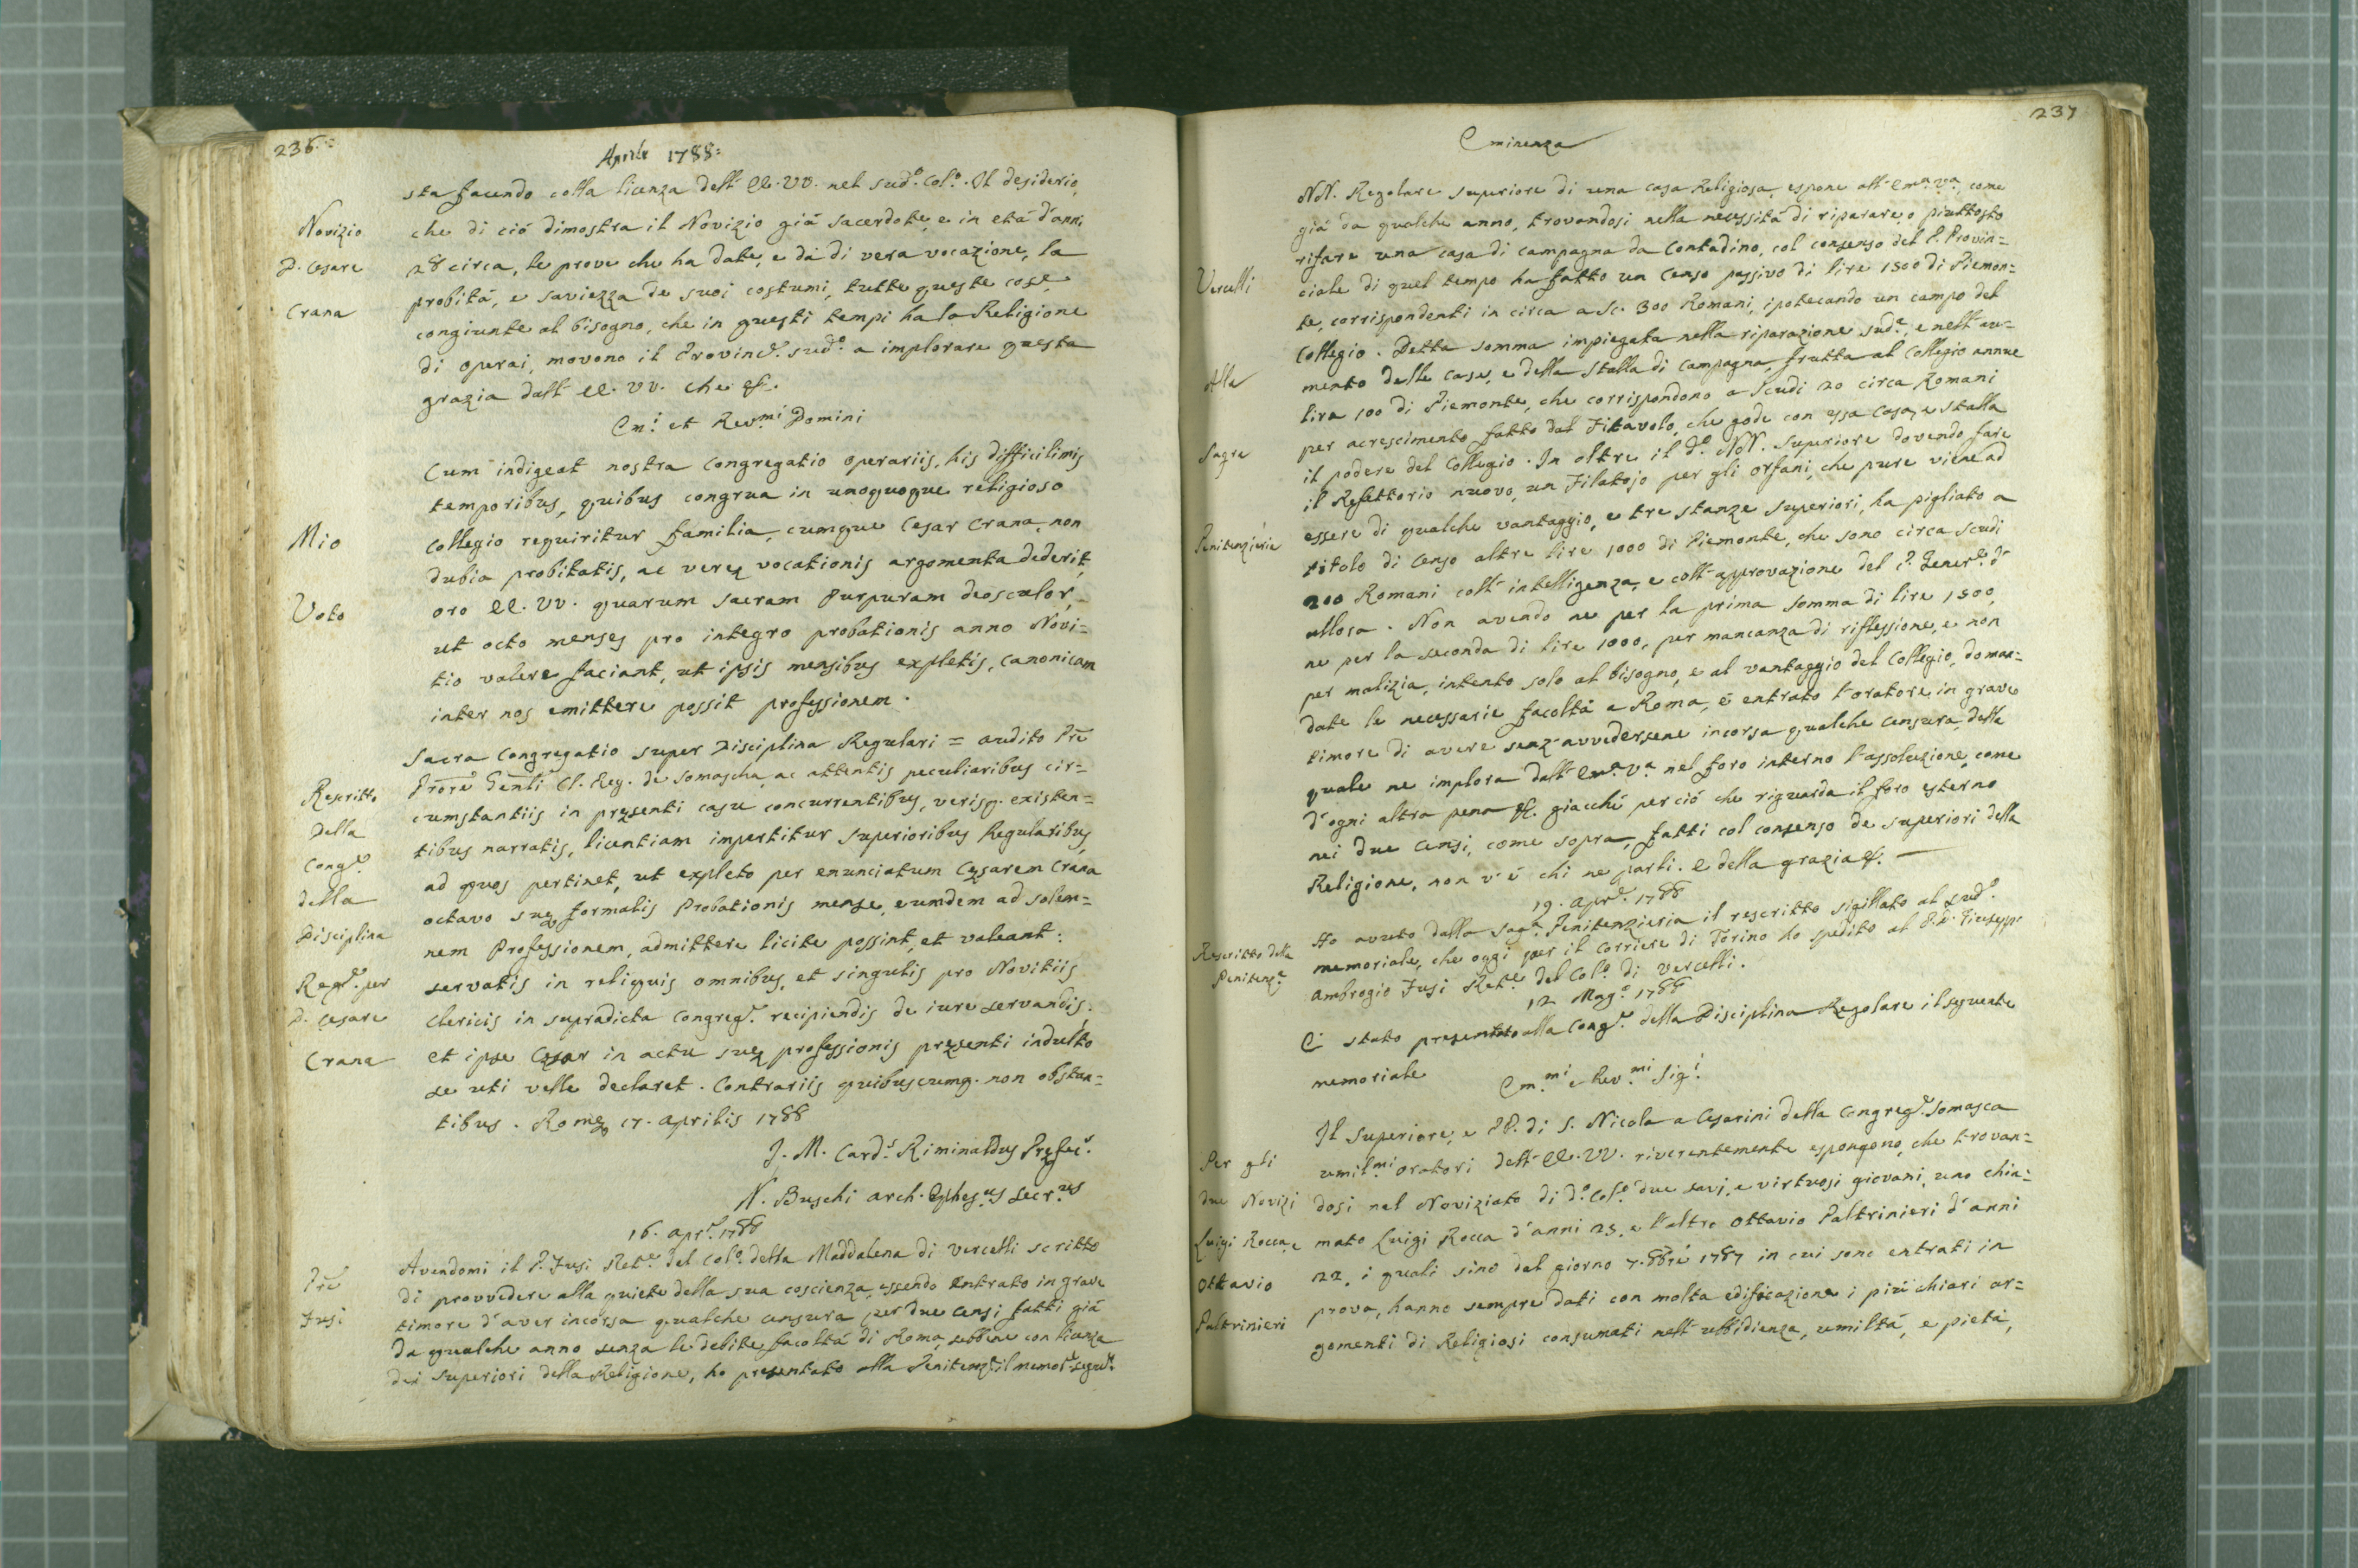 236.
Aprile 1788=
sta facendo colla licenza dell' EE. VV. nel sud.o Col.o. Il desiderio,
Novizio
che di ciò dimostra il Novizio già sacerdote, e in età d'anni
D. Cesare
28 circa, le prove che ha date, e dà di vera vocazione, la
Crana
probità, e saviezza de suoi costumi, tutte queste cose
congiunte al bisogno, che in questi tempi ha la Religione
di operai, movono il Provinc.e sud.o a implorare questa
grazia dall' EE. VV. che &c.
Em.i et Rev.mi Domini
Cum indigeat nostra Congregatio operariis, his difficilimis
temporibus, quibus congrua in unoquoque religioso
Mio
Collegio requiritur familia, cumque Cesar Crana, non
dubia probitatis, ac veræ vocationis argomenta dederit,
Voto
oro EE. VV. quarum sacram Purpuram deosculor,
ut octo menses pro integro probationis anno Novi=
tio valere faciant, ut ipsis mensibus expletis, canonicam
inter nos emittere possit professionem.
Sacra Congregatio super Disciplina Regulari = audito Pre
Prore Genli Cl. Reg. de Somascha, ac attentis peculiaribus cir=
Rescritto
cumstantiis in præsenti casu concurrentibus, verisq. existen=
della
tibus narratis, licentiam impertitur Superioribus Regularibus,
Cong.e
ad quos pertinet, ut expleto per enunciatum Cæsarem Crana
della
octavo suæ formalis Probationis mense, eumdem ad solem=
Disciplina
nem Professionem, admittere licite possint, et valeant:
Reg.e per
servatis in reliquis omnibus, et singulis pro Novitiis
D. Cesare
Clericis in supradicta Congreg.e recipiendis de iure servandis.
Crana
Et ipse Cæsar in actu suæ professionis præsenti indulto
se uti velle declaret. Contrariis quibuscumq. non obstan=
tibus. Romæ 17. Aprilis 1788
J. M. Card.s Riminaldus Præfec.s
N. Buschi Arch. Ephes.us Secr.us
16. Apr.e 1788
Avendomi il P. Fusi Ret.e del Col.o della Maddalena di Vercelli scritto
Pre
di provvedere alla quiete della sua coscienza, essendo entrato in grave
Fusi
timore d'aver incorsa qualche censura per due Censi fatti già
da qualche anno senza le debite facoltà di Roma, sebbene con licenza
dei Superiori della Religione, ho presentato alla Penitenz.a il memor.e segue.e
237
Eminenza
NN. Regolare Superiore di una casa Religiosa, espone all' Em.a V.a, come
già da qualche anno, trovandosi nella necessità di riparare, o piuttosto
rifare una casa di campagna da Contadino, col consenso del P. Provin=
Vercelli
ciale di quel tempo ha fatto un Censo passivo di lire 1500 di Piemon=
te, corrispondenti in circa a Sc. 300 Romani, ipotecando un campo del
Collegio. Detta somma impiegata nella riparazione sud.a, e nell' au=
Alla
mento delle case, e della stalla di Campagna, frutta al Collegio annue
lire 100 di Piemonte, che corrispondono a Scudi 20 circa Romani
per acrescimento fatto dal Fitavolo, che gode con essa Casa, e stalla
Sagre
il podere del Collegio. In oltre il d.o NN. Superiore dovendo fare
il Refettorio nuovo, un Filatojo per gli orfani, che pure viene ad
Penitenzierie
essere di qualche vantaggio, e tre stanze superiori, ha pigliato a
titolo di Censo altre lire 1000 di Piemonte, che sono circa Scudi
200 Romani coll' intelligenza, e coll' approvazione del P. Gener.e d'
allora. Non avendo ne per la prima somma di lire 1500,
ne per la seconda di lire 1000, per mancanza di riflessione, e non
per malizia, intento solo al bisogno, e al vantaggio del Collegio, doman=
date le necessarie facoltà a Roma, è entrato l'oratore in grave
timore di avere senz' avvedersene incorsa qualche censura, della
quale ne implora dall' Em.a V.a nel foro interno l'assoluzione, come
d'ogni altra pena &c. giacchè per ciò che riguarda il foro esterno
nei due Censi, come sopra, fatti col consenso de Superiori della
Religione, non v'è chi ne parli. E della grazia &c.
19. Apr.e 1788
Rescritto della
Ho avuto dalla Sag.a Penitenzieria il rescritto sigillato al sud.o
Penitenz.a
memoriale, che oggi per il Corriere di Torino ho spedito al P. D. Giuseppe
Ambrogio Fusi Ret.e del Col.o di Vercelli.
12 Mag.o 1788
E' stato presentato alla Cong.e della Disciplina Regolare il seguente
memoriale
Em.mi e Rev.mi Sig.i
Il Superiore, e PP. di S. Nicola a Cesarini della Congreg.e Somasca
Per gli
umil.mi oratori dell' EE. VV. riverentemente espongono, che trovan=
due Novizi
dosi nel Noviziato di d.o Col.o due savj, e virtuosi giovani, uno chia=
Luigi Rocca, e
mato Luigi Rocca d'anni 23, e l'altro Ottavio Paltrinieri d'anni
Ottavio
22, i quali sino dal giorno 7. 8bre 1787 in cui sono entrati in
Paltrinieri
prova, hanno sempre dati con molta edificazione i più chiari ar=
gomenti di Religiosi consumati nell' ubbidienza, umiltà, e pietà,